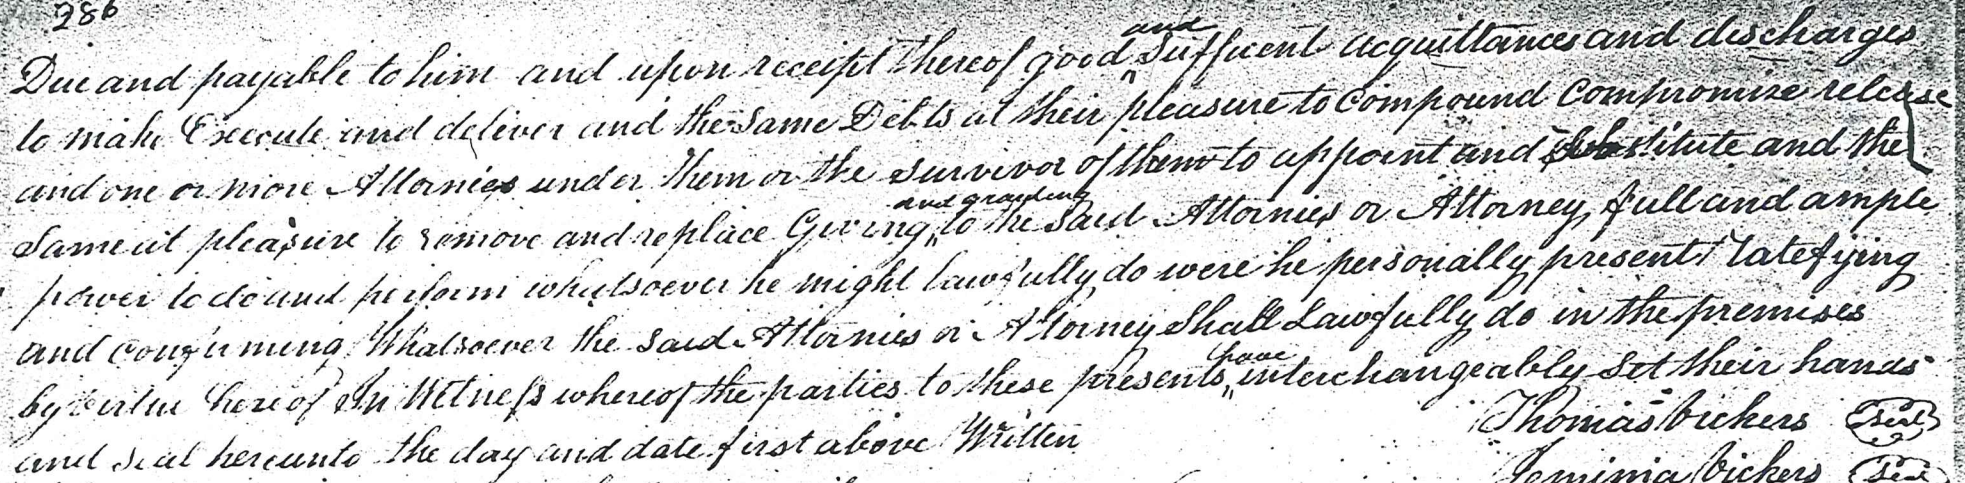 286
Due and payable to him and upon receipt thereof good and Suffucent acquittances and discharges
to make Execute and deliver and the Same Debts at their pleasure to Compound Compromise release
and one or more Attornies under them or the survivor of them to appoint and Substitute and the
Same at pleasure to remove and replace Giving and granting to the Said Attornies or Attorney full and ample
power to do and perform whatsoever he might lawfully do were he personally present ratefying
and confirming Whatsoever the Said Attornies or Attorney Shall Lawfully do in the premises
by virtue hereof In Witness whereof the parties to these presents have interchangeably Set their hands
and seal hereunto the day and date first above Written
Thomas Vickers seal
Jemimia Vickers seal